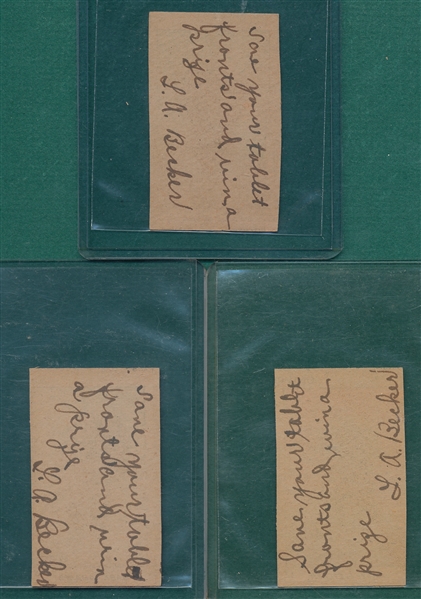 Save your tablet
fronts and win a
prize
L. A. Becker
Save your tablet
fronts and win
a prize
L. A. Becker
Save your tablet
fronts and win a
prize L. A. Becker